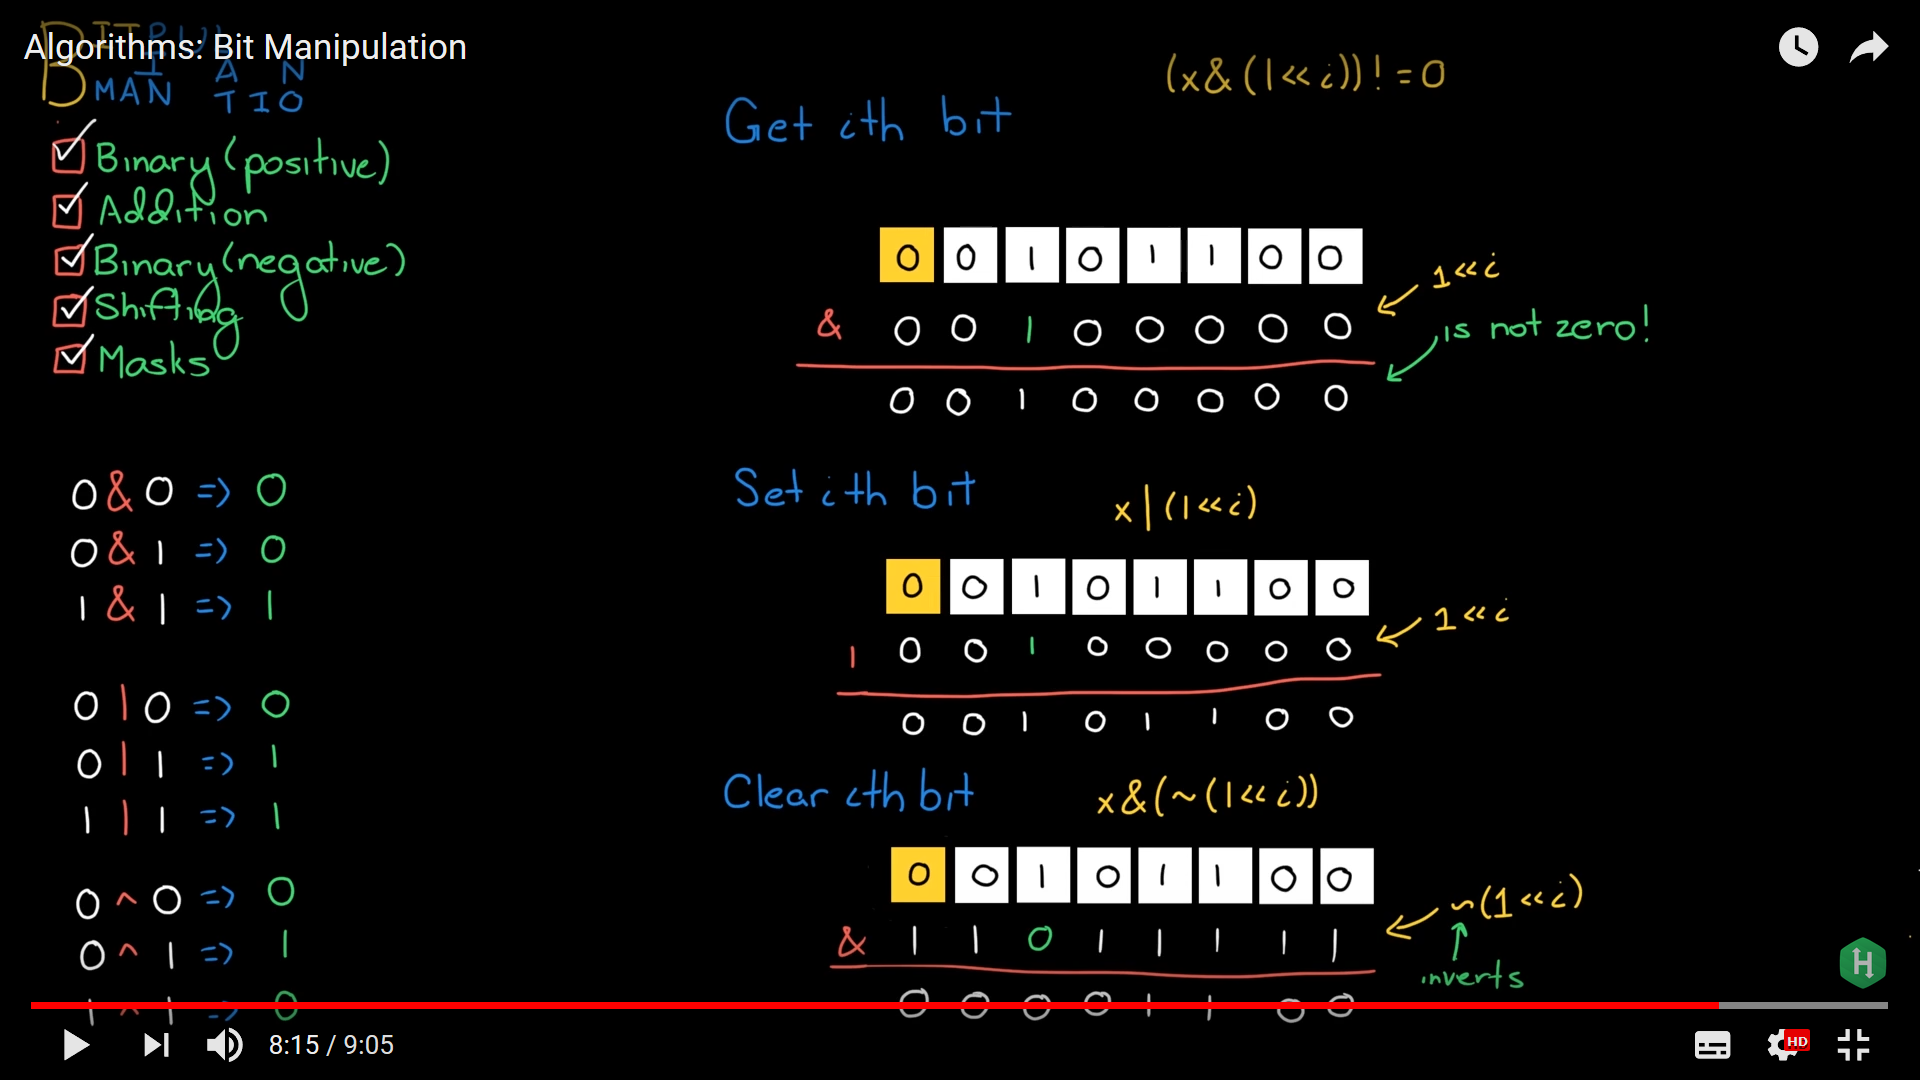 Algorithms: Bit Manipulation
BIT
MAN I PUL A TIO N
Binary (positive)
Addition
Binary (negative)
Shifting
Masks
0 & 0 => 0
0 & 1 => 0
1 & 1 => 1
0 | 0 => 0
0 | 1 => 1
1 | 1 => 1
0 ^ 0 => 0
0 ^ 1 => 1
1 ^ 1 => 0
Get ith bit
(x&(1<<i))!=0
0 0 1 0 1 1 0 0
& 0 0 1 0 0 0 0 0
1<<i
0 0 1 0 0 0 0 0
is not zero!
Set ith bit
x|(1<<i)
0 0 1 0 1 1 0 0
| 0 0 1 0 0 0 0 0
1<<i
0 0 1 0 1 1 0 0
Clear ith bit
x&(~(1<<i))
0 0 1 0 1 1 0 0
& 1 1 0 1 1 1 1 1
~(1<<i)
inverts
0 0 0 0 1 1 0 0
H
8:15 / 9:05
HD